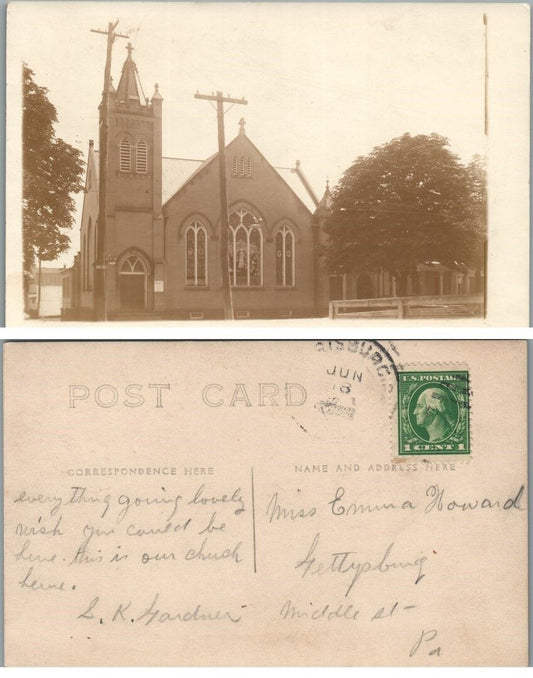 POST CARD
ISBURG
JUN
8
U.S. POSTAGE
1 CENT 1
CORRESPONDENCE HERE
NAME AND ADDRESS HERE
everything going lovely
wish you could be
here. this is our chuch
here.
S. K. Gardner
Miss Emma Howard
Gettysburg
Middle st-
Pa